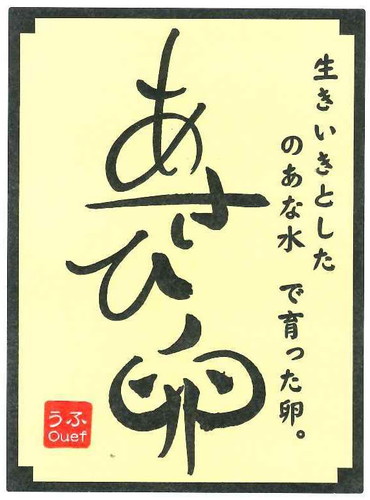 生きいきとした
のあな水 で育った卵。
あさひ卵
うふ
Ouef